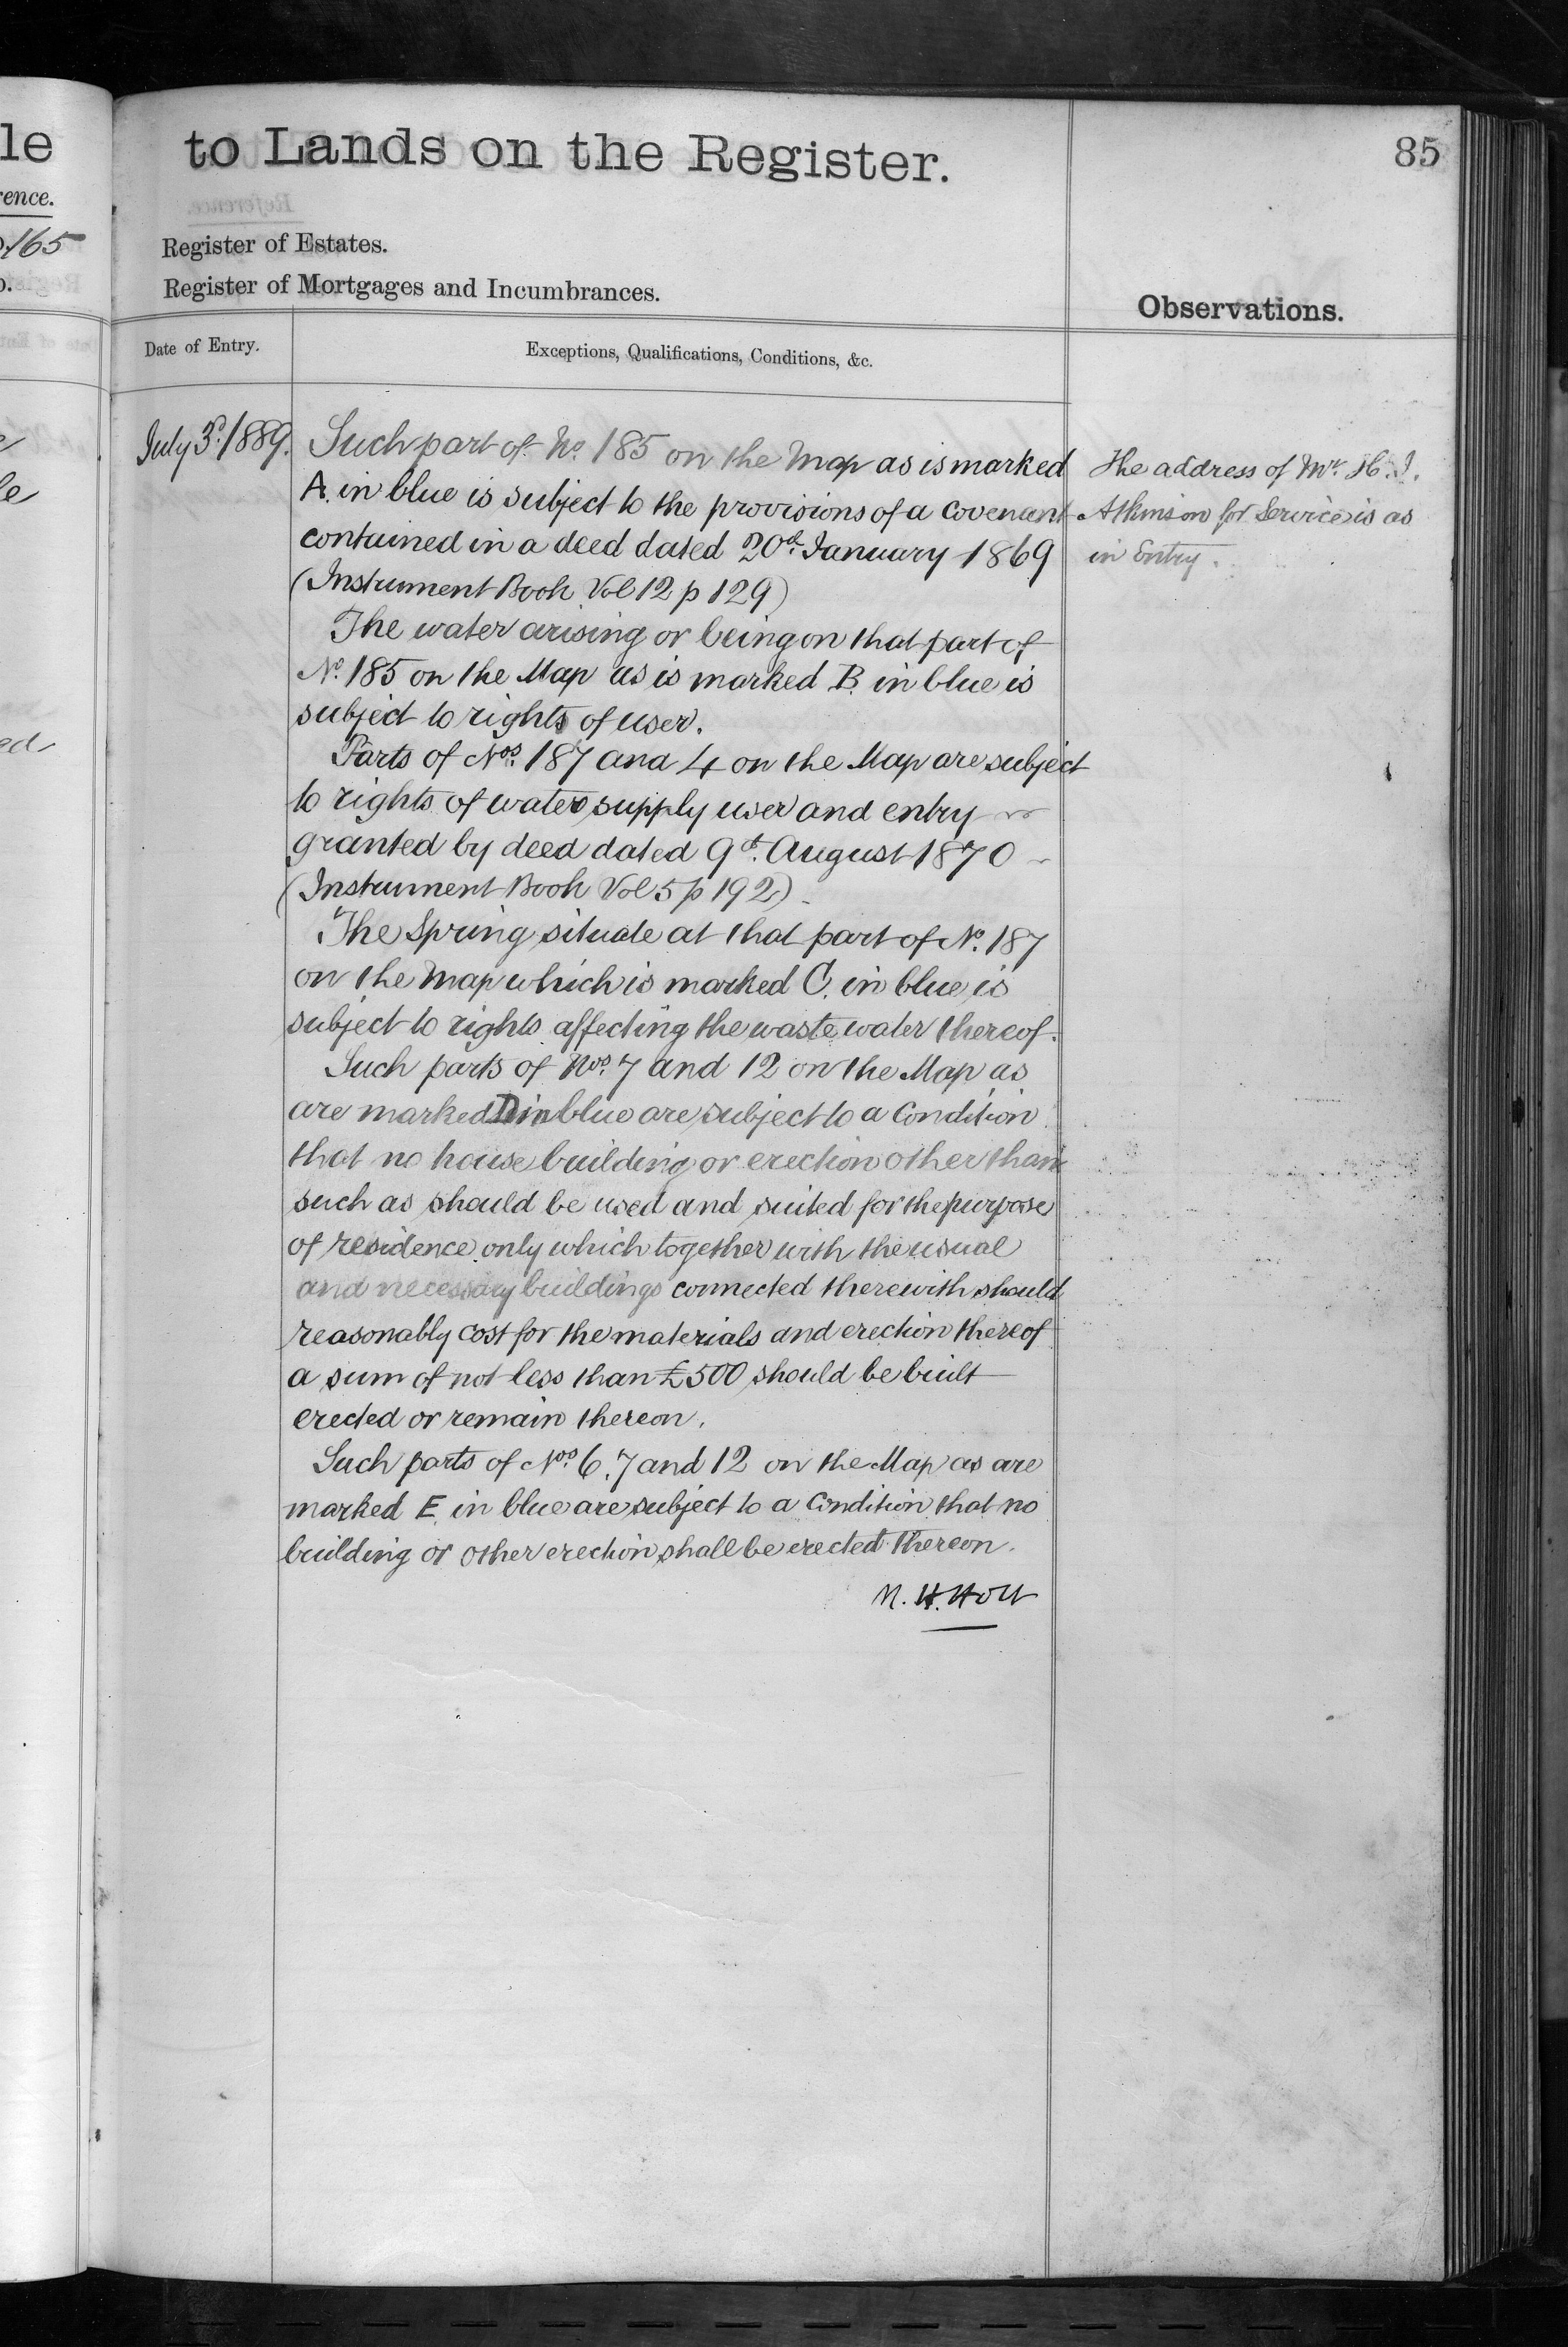 le
to Lands on the Register.
85
rence.
165
Register of Estates.
Register of Mortgages and Incumbrances.
Observations.
Date of Entry.
Exceptions, Qualifications, Conditions, &c.
July 3d. 1889.
Such part of No. 185 on the Map as is marked
A. in blue is subject to the provisions of a Covenant
contained in a deed dated 20th. January 1869
(Instrument Book Vol 12 p 129)
The water arising or being on that part of
No. 185 on the Map as is marked B. in blue is
subject to rights of user.
Parts of Nos. 187 and 4 on the Map are subject
to rights of water supply user and entry
granted by deed dated 9th. August 1870
(Instrument Book Vol 5 p 192)
The Spring situate at that part of No. 187
on the Map which is marked C. in blue is
subject to rights affecting the waste water thereof.
Such parts of Nos. 7 and 12 on the Map as
are marked D in blue are subject to a Condition
that no house building or erection other than
such as should be used and suited for the purpose
of residence only which together with the usual
and necessary buildings connected therewith should
reasonably cost for the materials and erection thereof
a sum of not less than £500 should be built
erected or remain thereon.
Such parts of Nos. 6, 7 and 12 on the Map as are
marked E. in blue are subject to a Condition that no
building or other erection shall be erected thereon.
The address of Mr. H. J.
Atkinson for Service is as
in Entry.